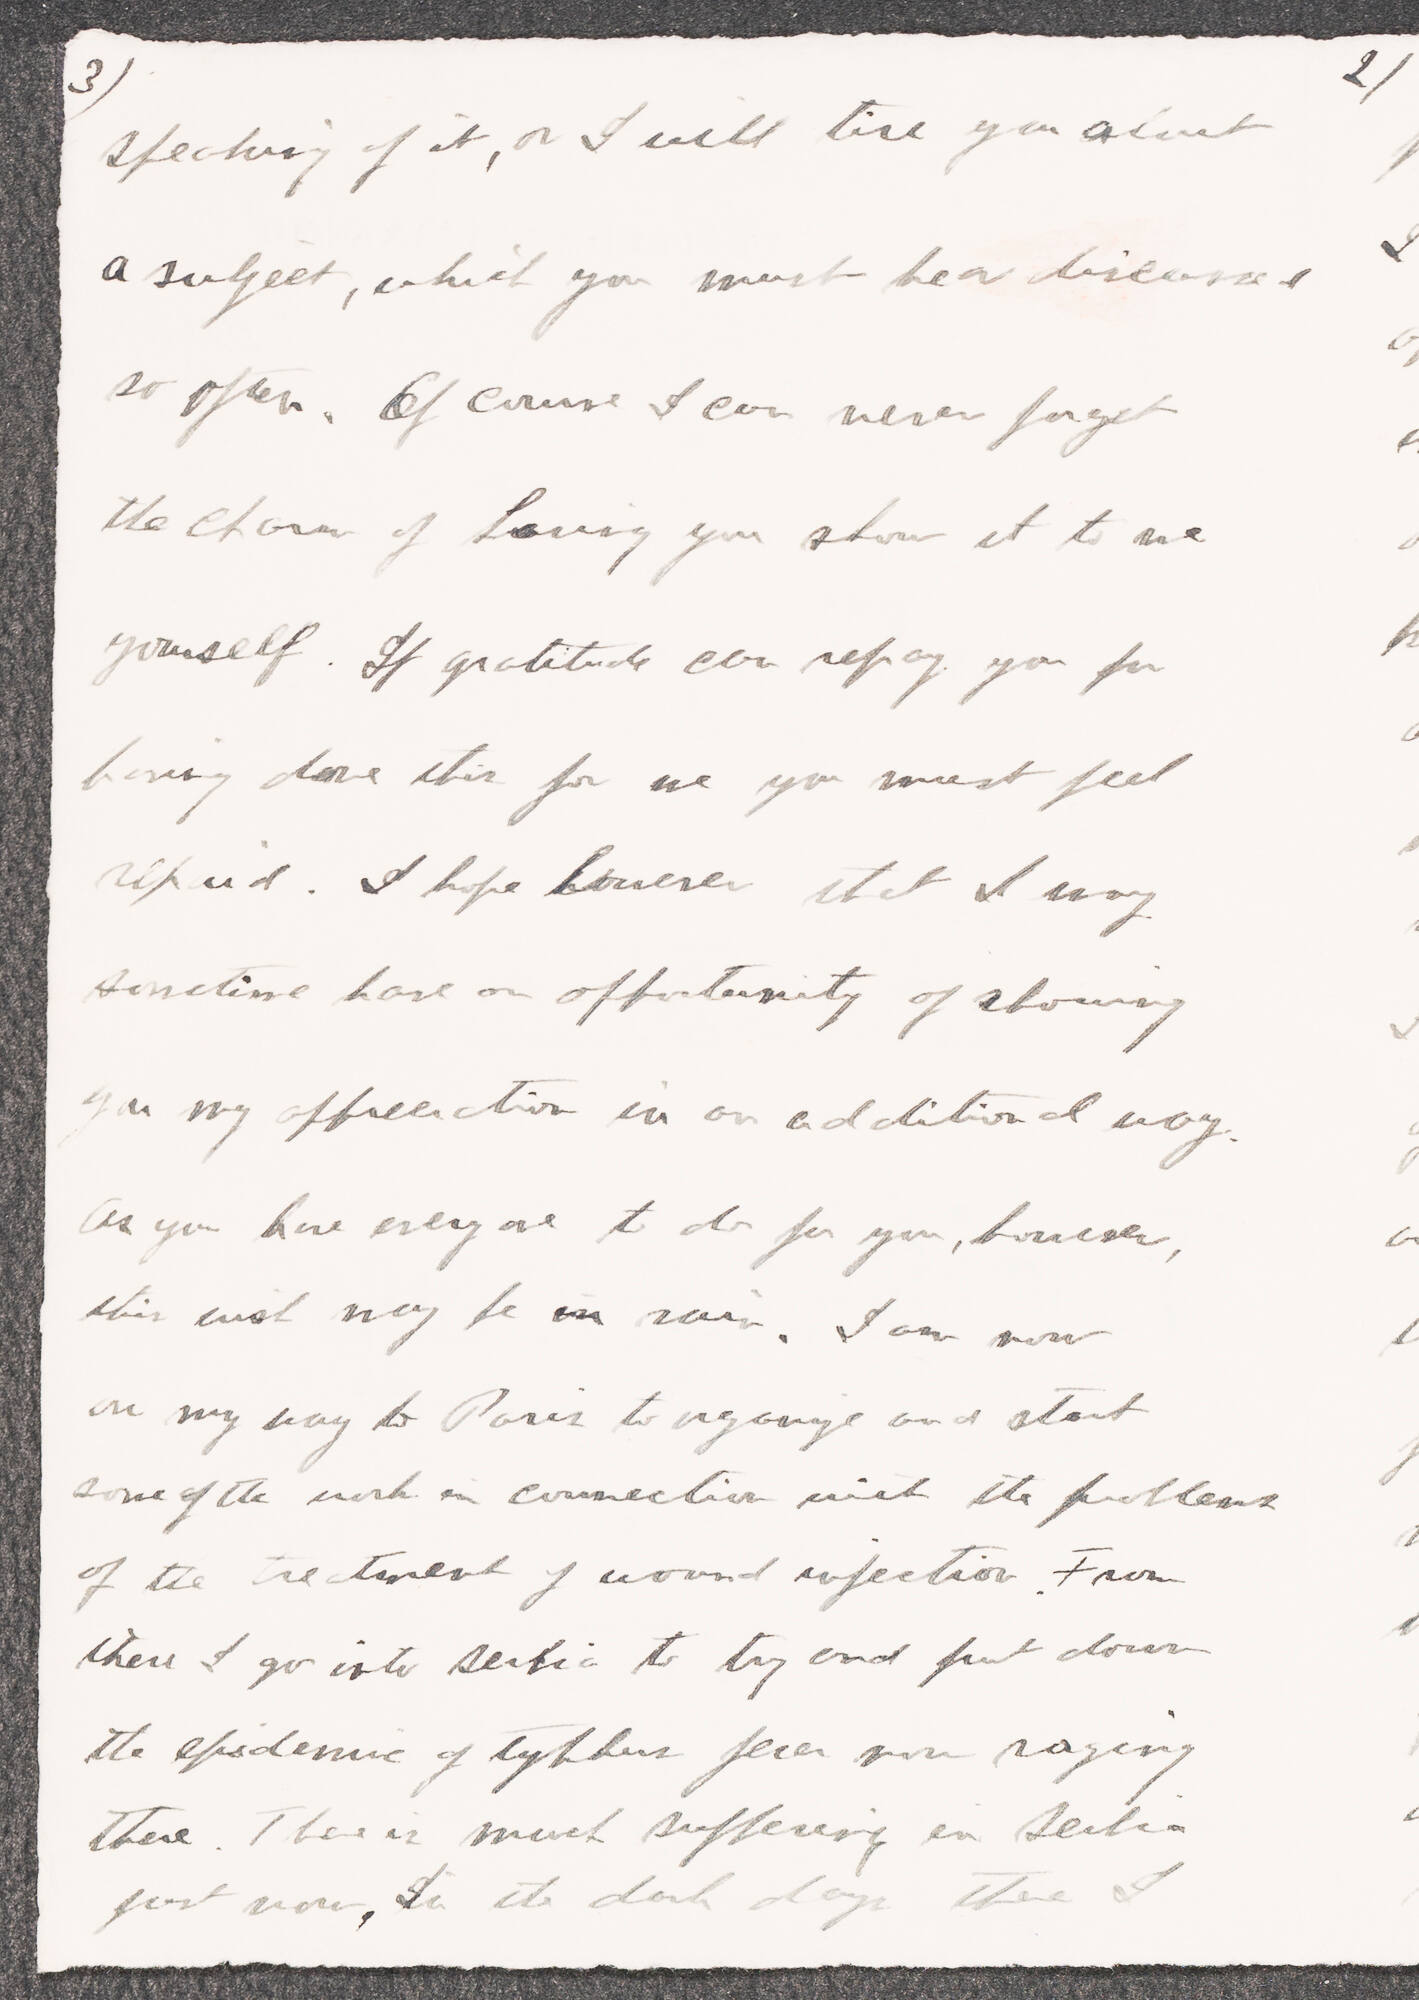 3)
speaking of it, or I will tire you about
a subject, which you must hear discussed
so often. Of course I can never forget
the charm of having you show it to me
yourself. If gratitude can repay you for
having done this for me you must feel
repaid. I hope however that I may
sometime have an opportunity of showing
you my appreciation in an additional way.
As you have everyone to do for you, however,
this wish may be in vain. I am now
on my way to Paris to organize and start
some of the work in connection with the problems
of the treatment of wound infection. From
there I go into Serbia to try and put down
the epidemic of typhus fever now raging
there. There is much suffering in Serbia
just now. In the dark days there I
2)